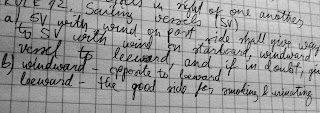 RULE 12. Sailing vessels (SV)
is in right of one another
a) SV with wind on port side shall give way
to SV with wind on starboard, windward
vessel to leeward, and if in doubt,
b) windward - opposite to leeward
leeward - the good side for smoking & urinating